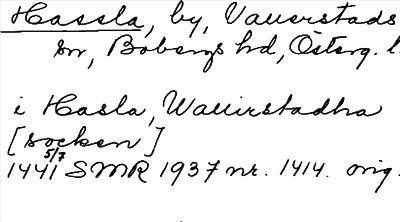 Hassla, by, Vaverstads
sn, Bobergs hd, Österg. l.
i Hasla, Wauirstadha
[socken]
5/7
1441 SMR 1937 nr. 1414. orig.